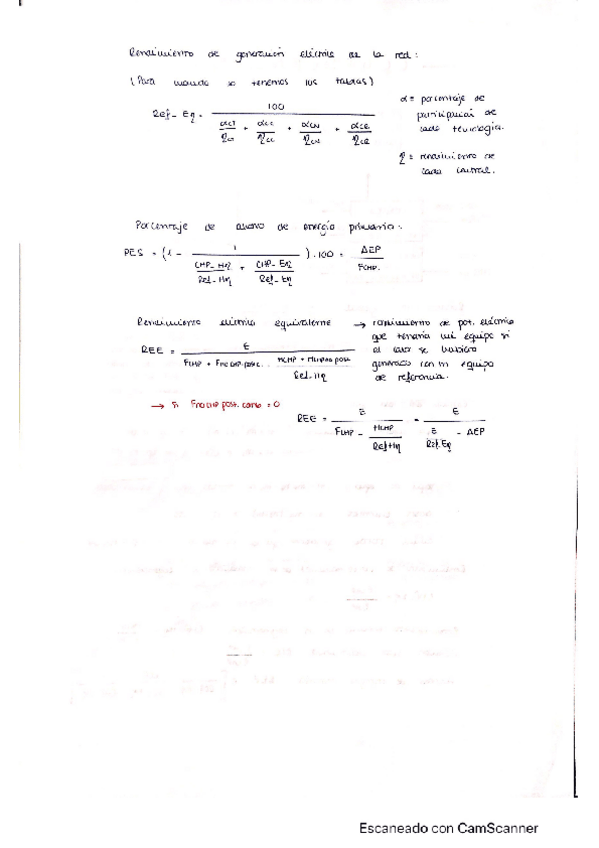 Rendimiento de generación eléctrica de la red:
(Para cuando no tenemos las tablas)
Ref_Eη = 100 / (αCT/ηCT + αCC/ηCC + αCN/ηCN + αCR/ηCR)
α = porcentaje de
participación de
cada tecnología.
η = rendimiento de
cada central.
Porcentaje de ahorro de energía primaria:
PES = (1 - 1 / (CHP_Hη/Ref_Hη + CHP_Eη/Ref_Eη)) · 100 = ΔEP / FCHP.
Rendimiento eléctrico equivalente → rendimiento de pot. eléctrica
que tendría mi equipo si
el calor se hubiera
generado con un equipo
de referencia.
REE = E / (FCHP + Fno CHP post. - (HCHP + Hno CHP post) / Ref_Hη)
→ Si Fno CHP post. comb = 0
REE = E / (FCHP - HCHP/Ref Hη) = E / (E/Ref Eη - ΔEP)
Escaneado con CamScanner